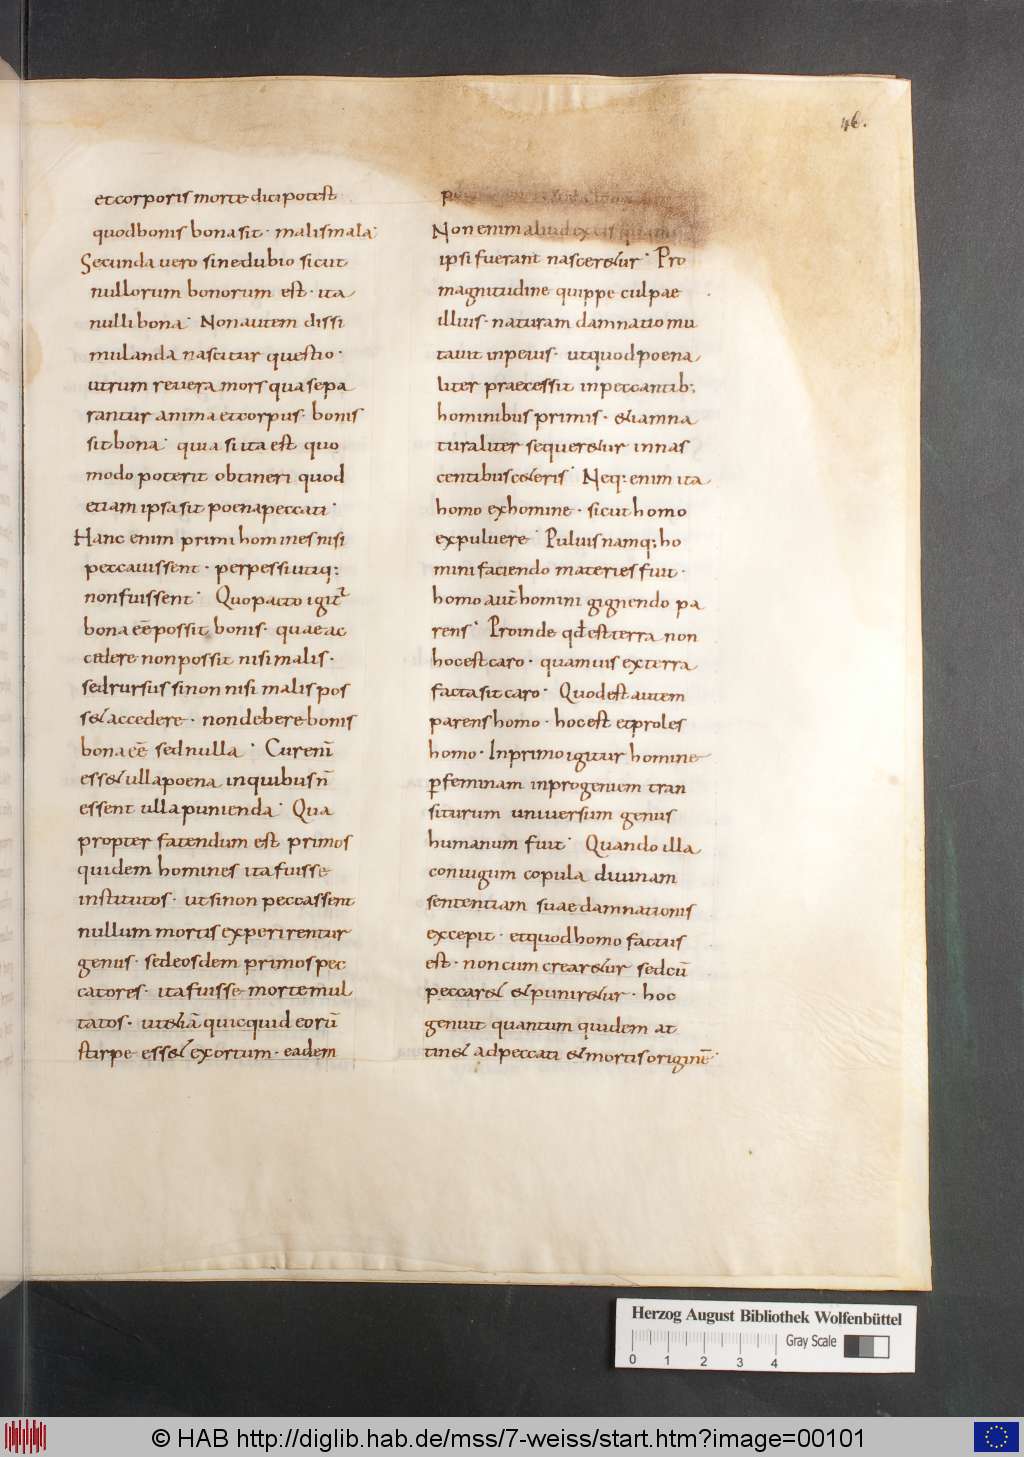 46.
et corporis morte dici potest
quod bonis bona sit · malis mala·
Secunda vero sine dubio sicut
nullorum bonorum est · ita
nulli bona· Non autem dissi
mulanda nascitur questio·
utrum revera mors qua sepa
rantur anima et corpus · bonis
sit bona· quia si ita est quo
modo poterit obtineri quod
etiam ipsa sit poena peccati·
Hanc enim primi homines nisi
peccavissent · perpessi utiq;
non fuissent· Quo pacto igit᷑
bona eē possit bonis · quae ac
cedere non possit nisi malis·
sed rursus si non nisi malis pos
s& accedere · non debere bonis
bona eē sed nulla· Cur eni̅
ess& ulla poena in quibus n̅
essent ulla punienda· Qua
propter fatendum est primos
quidem homines ita fuisse
institutos · ut si non peccassent
nullum mortis experirentur
genus · sed eosdem primos pec
catores · ita fuisse morte mul
tatos · ut &iā quicquid eorū
stirpe ess& exortum · eadem
Non enim aliud ex eis quam
ipsi fuerant nascer&ur· Pro
magnitudine quippe culpae
illius · naturam damnatio mu
tavit in peius · ut quod poena
liter praecessit in peccantib;
hominibus primis · &iam na
turaliter sequer&ur in nas
centibus c&eris· Neq; enim ita
homo ex homine · sicut homo
ex pulvere· Pulvis namq; ho
mini faciendo materies fuit·
homo aut̅ homini gignendo pa
rens· Proinde qd̅ est terra non
hoc est caro · quamvis ex terra
facta sit caro· Quod est autem
parens homo · hoc est et proles
homo · In primo igitur homine
p̲ feminam in progeniem tran
siturum universum genus
humanum fuit· Quando illa
coniugum copula divinam
sententiam suae damnationis
excepit · et quod homo factus
est · non cum crear&ur sed cū
peccar& & punir&ur · hoc
genuit quantum quidem at
tin& ad peccati & mortis originē·
Herzog August Bibliothek Wolfenbüttel
Gray Scale
0 1 2 3 4
© HAB http://diglib.hab.de/mss/7-weiss/start.htm?image=00101